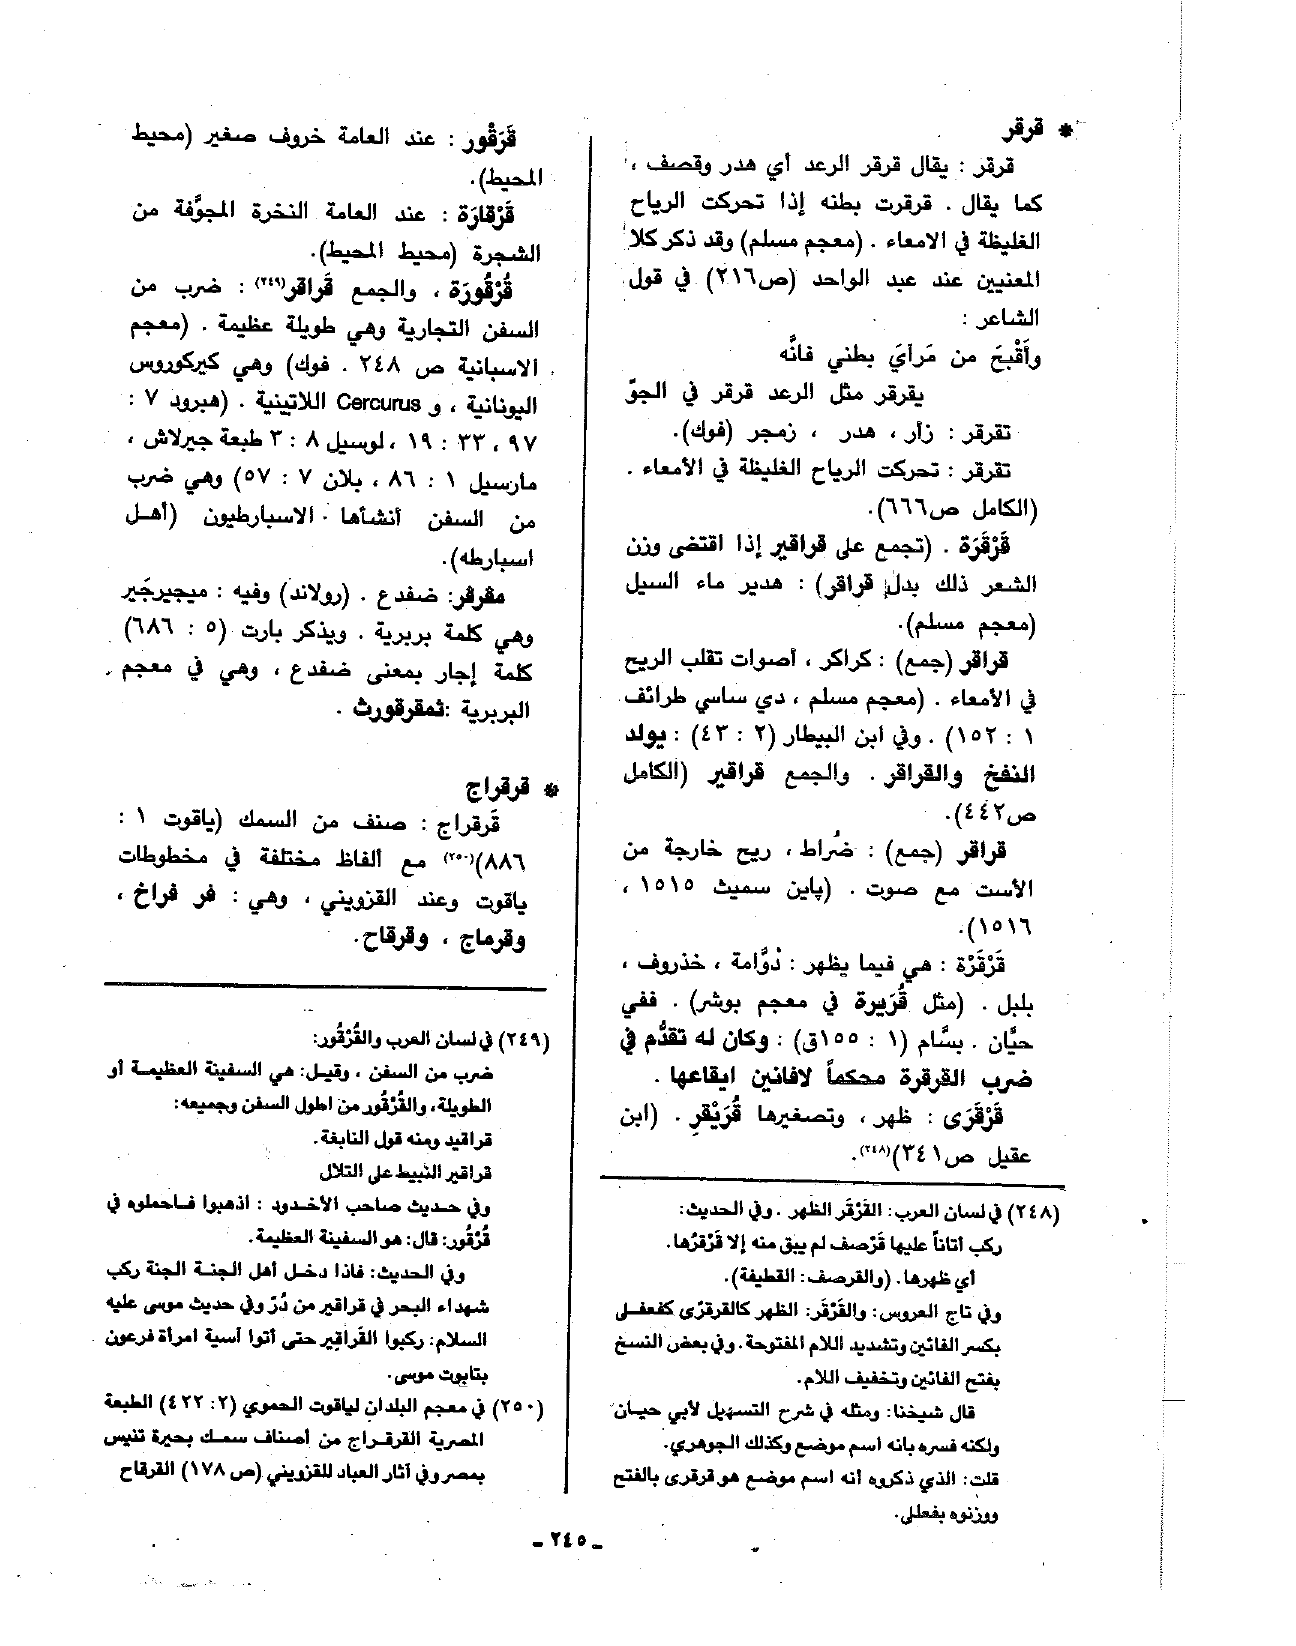 * قرقر
قرقر : يقال قرقر الرعد أي هدر وقصف ،
كما يقال . قرقرت بطنه إذا تحركت الرياح
الغليظة في الامعاء . (معجم مسلم) وقد ذكر كلا
المعنيين عند عبد الواحد (ص٢١٦) في قول
الشاعر :
وأَقْبَحَ من مَرأيَ بطني فانَّه
يقرقر مثل الرعد قرقر في الجوّ
تقرقر : زأر ، هدر ، زمجر (فوك).
تقرقر : تحركت الرياح الغليظة في الأمعاء .
(الكامل ص٦٦٦).
قَرْقَرَة . (تجمع على قراقير إذا اقتضى وزن
الشعر ذلك بدل قراقر) : هدير ماء السيل
(معجم مسلم).
قراقر (جمع) : كراكر ، أصوات تقلب الريح
في الأمعاء . (معجم مسلم ، دي ساسي طرائف
١ : ١٥٢) . وفي ابن البيطار (٢ : ٤٣) : يولد
النفخ والقراقر . والجمع قراقير (الكامل
ص٤٤٢).
قراقر (جمع) : ضُراط ، ريح خارجة من
الأست مع صوت . (پاين سميث ١٥١٥ ،
١٥١٦).
قَرْقَرْة : هي فيما يظهر : دُوَّامة ، خذروف ،
بلبل . (مثل قُرَيرة في معجم بوشر) . ففي
حيَّان . بسَّام (١ : ١٥٥ق) : وكان له تقدُّم في
ضرب القرقرة محكماً لافانين ايقاعها .
قَرْقَرَى : ظهر ، وتصغيرها قُرَيْقر . (ابن
عقيل ص٣٤١)(٢٤٨).
(٢٤٨) في لسان العرب: القَرْقَر الظهر . وفي الحديث:
ركب أتاناً عليها قَرْصف لم يبق منه إلا قَرْقرُها.
أي ظهرها. (والقرصف: القطيفة).
وفي تاج العروس: والقَرْقَر: الظهر كالقرقرّى كفعفلى
بكسر الفائين وتشديد اللام المفتوحة. وفي بعض النسخ
بفتح الفائين وتخفيف اللام.
قال شيخنا: ومثله في شرح التسهيل لأبي حيان
ولكنه فسره بانه اسم موضع وكذلك الجوهري.
قلت: الذي ذكروه أنه اسم موضع هو قرقرى بالفتح
ووزنوه بفعللى.
قَرَقُور : عند العامة خروف صغير (محيط
المحيط).
قَرْقارَة : عند العامة النخرة المجوَّفة من
الشجرة (محيط المحيط).
قُرْقُورَة ، والجمع قَراقر(٢٤٩) : ضرب من
السفن التجارية وهي طويلة عظيمة . (معجم
الاسبانية ص ٢٤٨ . فوك) وهي كيركوروس
اليونانية ، و Cercurus اللاتينية . (هيرود ٧ :
٩٧ ، ٣٣ : ١٩ ، لوسيل ٨ : ٣ طبعة جيرلاش ،
مارسيل ١ : ٨٦ ، بلان ٧ : ٥٧) وهي ضرب
من السفن أنشأها الاسبارطيون (أهل
اسبارطه).
مقرقر: ضفدع . (رولاند) وفيه : ميجيرجير
وهي كلمة بربرية . ويذكر بارت (٥ : ٦٨٦)
كلمة إجار بمعنى ضفدع ، وهي في معجم
البربرية :ثمقرقورث .
* قرقراج
قَرقراج : صنف من السمك (ياقوت ١ :
٨٨٦)(٢٥٠) مع ألفاظ مختلفة في مخطوطات
ياقوت وعند القزويني ، وهي : فر فراخ ،
وقرماج ، وقرقاح.
(٢٤٩) في لسان العرب والقُرْقُور:
ضرب من السفن ، وقيل: هي السفينة العظيمة أو
الطويلة، والقُرْقُور من اطول السفن وجميعه:
قراقيد ومنه قول النابغة.
قراقير النبيط على التلال
وفي حديث صاحب الأخدود : اذهبوا فاحملوه في
قُرْقُور: قال: هو السفينة العظيمة.
وفي الحديث: فاذا دخل أهل الجنة الجنة ركب
شهداء البحر في قراقير من دُرّ وفي حديث موسى عليه
السلام: ركبوا القَراقِير حتى أتوا آسية امرأة فرعون
بتابوت موسى.
(٢٥٠) في معجم البلدان لياقوت الحموي (٢: ٤٢٢) الطبعة
المصرية القرقراج من أصناف سمك بحيرة تنيس
بمصر وفي آثار العباد للقزويني (ص ١٧٨) القرقاح
- ٢٤٥ -